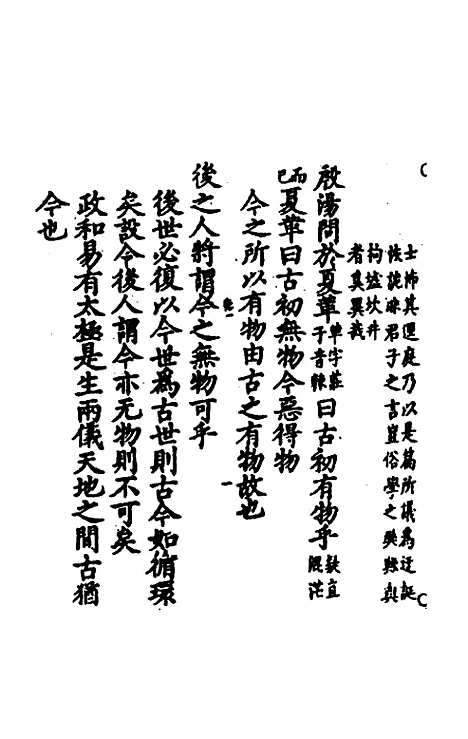 士怖其逕庭乃以是篇所議爲迂誕
恢詭昧君子之言豈俗學之與縣真
拘虛坎井
者莫異哉
殷湯問於夏革革字莊子音棘曰古初有物乎疑宜混茫
而已夏革曰古初無物今惡得物
今之所以有物由古之有物故也
後之人將謂今之無物可乎
後世必復以今世爲古世則古今如循環
矣設令後人謂今亦无物則不可矣
政和易有太極是生兩儀天地之間古猶
今也